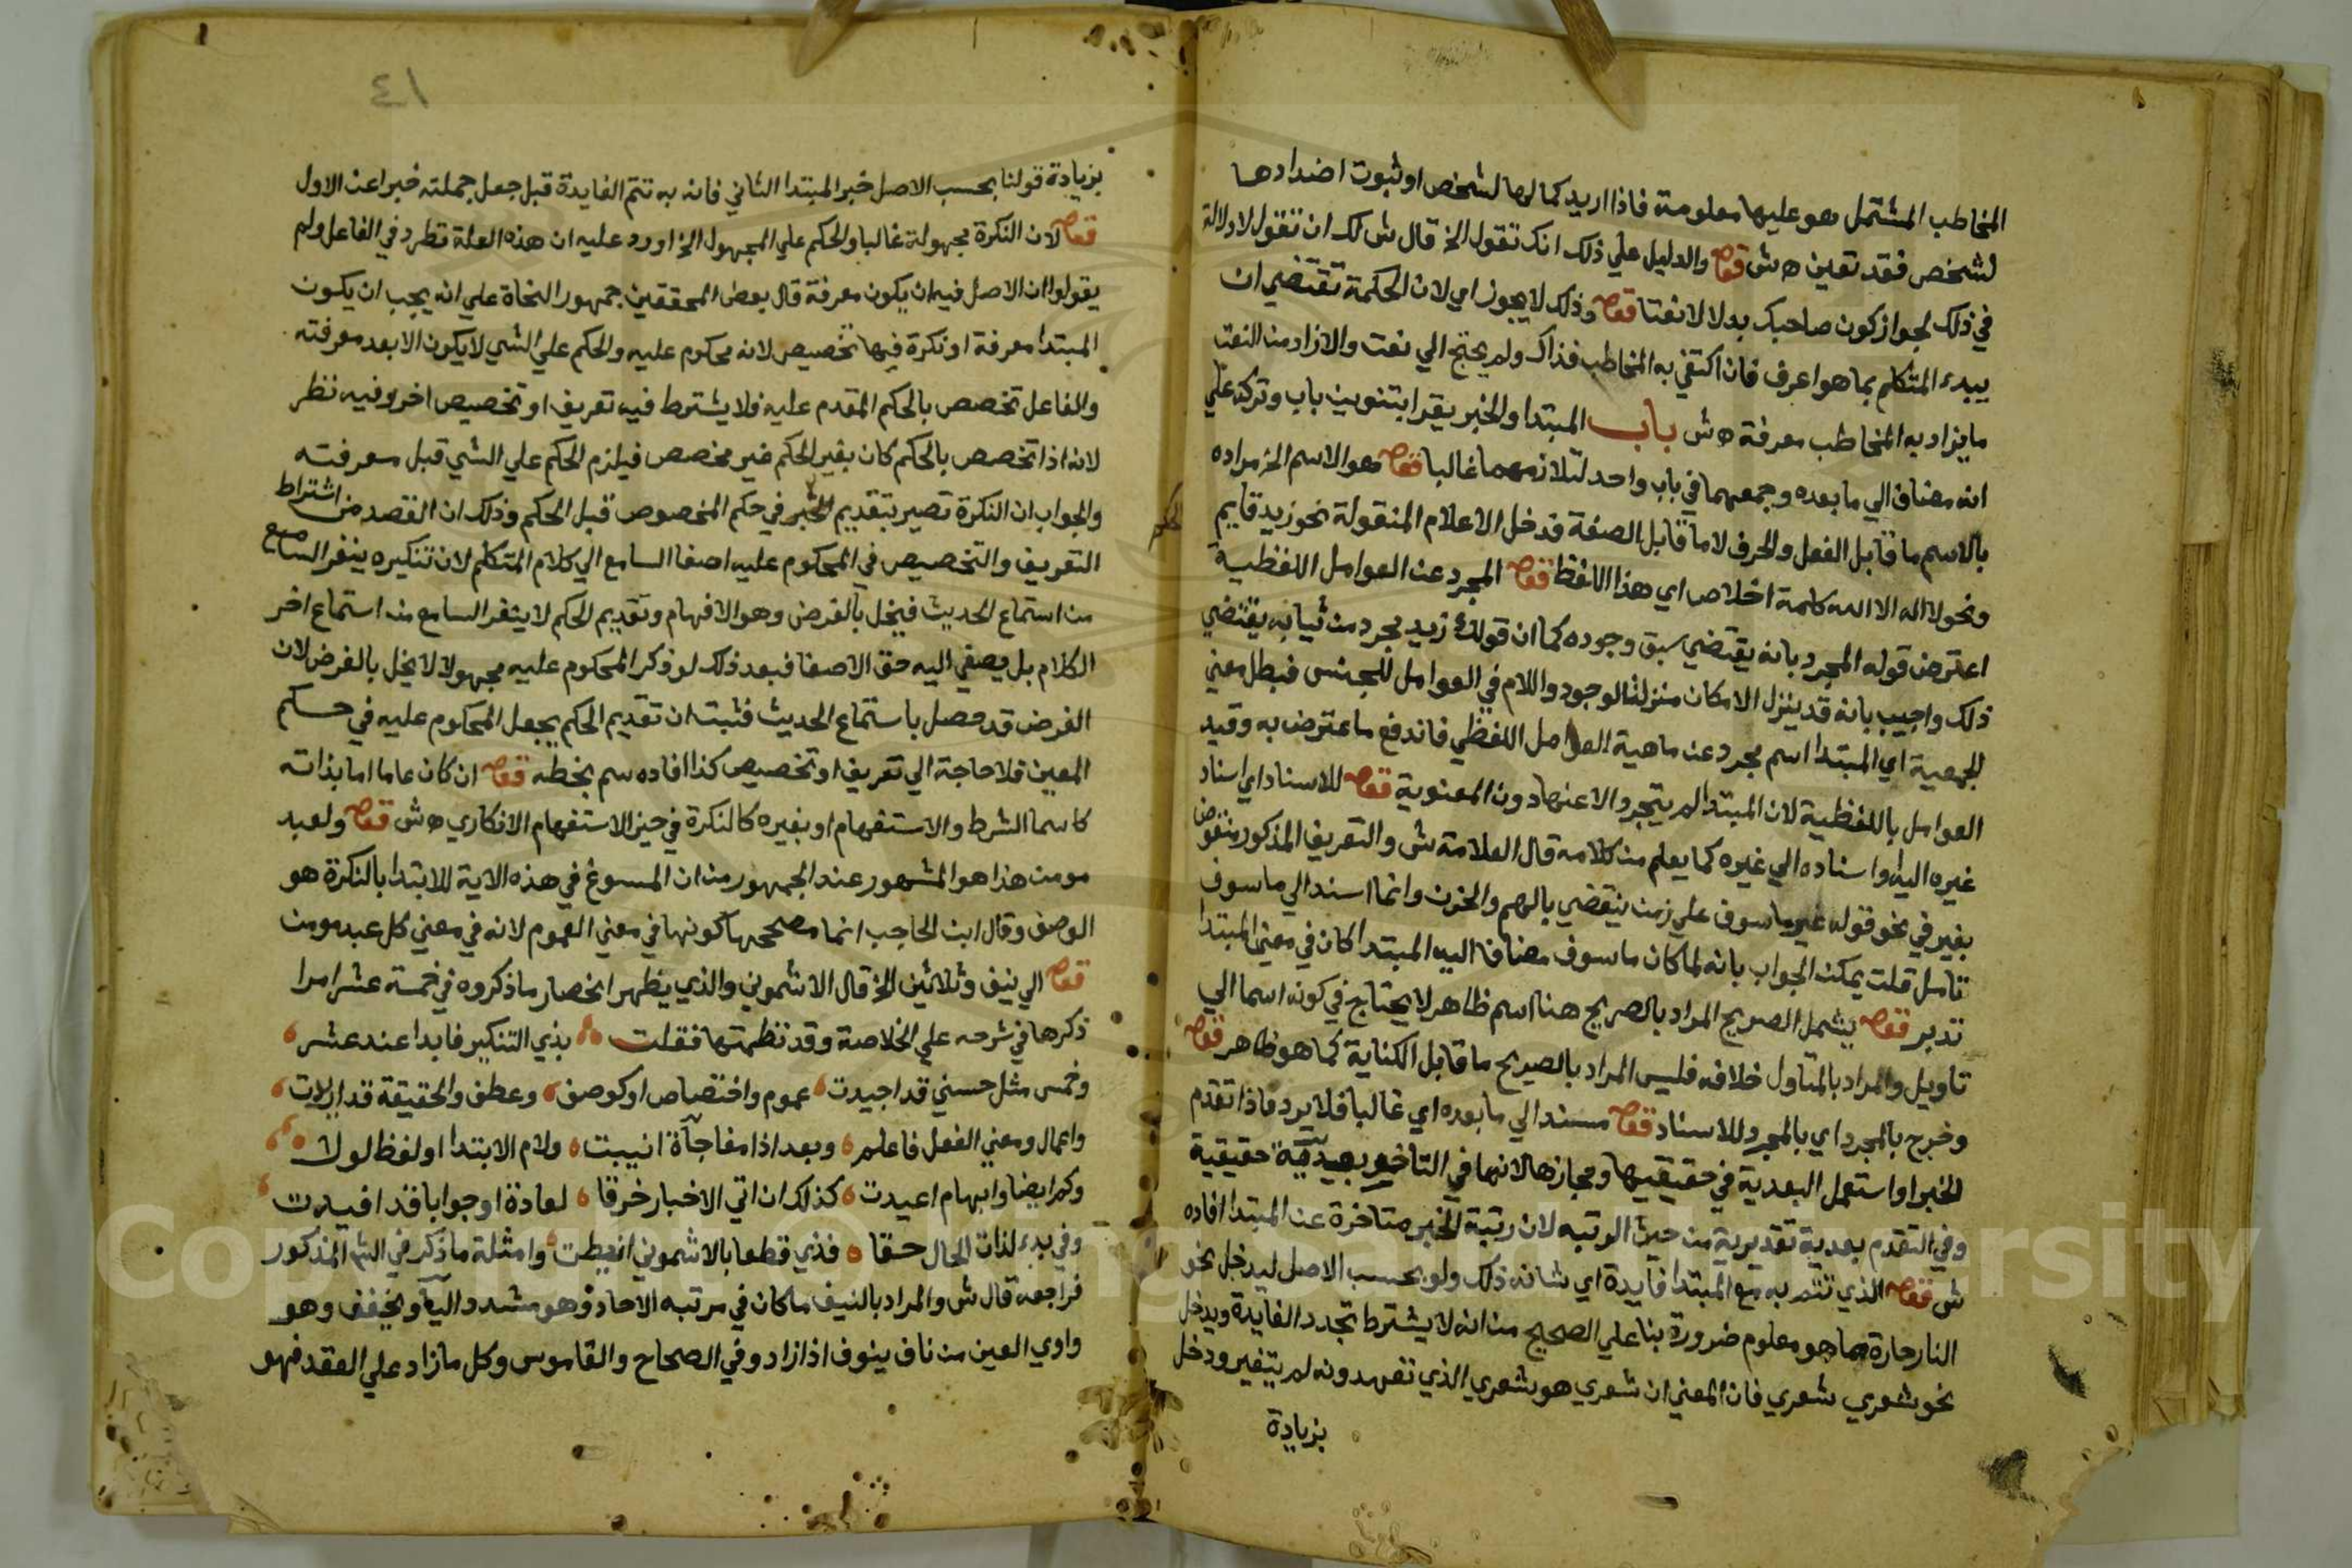 المخاطب المشتمل هو عليها معلومة فاذا اريد كمالها لشخص او ثبوت اضدادها
لشخص فقد تعين ه ش قوله والدليل علي ذلك انك تقول الخ قال ش لك ان تقول لا دلالة
في ذلك لجواز كون صاحبك بدلا لا نعتا قوله وذلك لا يجوز اي لان الحكمة تقتضي ان
يبدء المتكلم بما هو اعرف فان اكتفي به المخاطب فذاك ولم يحتج الي نعت والا زاد من النعت
ما يزاد به المخاطب معرفة ه ش باب المبتدا والخبر يقرا بتنوين باب وتركه علي
انه مضاف الي ما بعده وجمعهما في باب واحد لتلازمهما غالبا قوله هو الاسم الخ مراده
بالاسم ما قابل الفعل والحرف لا ما قابل الصفة فدخل الاعلام المنقولة نحو زيد قايم
ونحو لا اله الا الله كلمة اخلاص اي هذا اللفظ قوله المجرد عن العوامل اللفظية
اعترض قوله المجرد بانه يقتضي سبق وجوده كما ان قولك زيد مجرد من ثيابه يقتضي
ذلك واجيب بانه قد ينزل الامكان منزلة الوجود واللام في العوامل للجنس فبطل معني
الجمعية اي المبتدا اسم مجرد عن ماهية العوامل اللفظي فاندفع ما عترض به وقيد
العوامل باللفظية لان المبتدا لم يتجرد الا عنها دون المعنوية قوله للاسناد اي اسناد
غيره اليه او اسناده الي غيره كما يعلم من كلامه قال العلامة ش والتعريف المذكور منقوض
بغير في نحو قوله غير ماسوف علي زمن ينقضي بالهم والحزن وانما اسند الي ماسوف
تامل قلت يمكن الجواب بانه لما كان ماسوف مضافا اليه المبتدا كان في معني المبتدا
تدبر قوله يشمل الصريح المراد بالصريح هنا اسم ظاهر لا يحتاج في كونه اسما الي
تاويل والمراد بالمتاول خلافه فليس المراد بالصريح ما قابل الكناية كما هو ظاهر قوله
وخرج بالمجرد اي بالمجرد للاسناد قوله مسند الي ما بعده اي غالبا فلا يرد ما اذا تقدم
الخبر او استعمل البعدية في حقيقيها ومجازها لانها في التاخير بعدية حقيقية
وفي التقدم بعدية تقديرية من حيث الرتبه لان رتبة الخبر متاخرة عن المبتدا افاده
ش قوله الذي تتم به مع المبتدا فايدة اي شانه ذلك ولو بحسب الاصل ليدخل نحو
النار حارة مما هو معلوم ضرورة بنا علي الصحيح من انه لا يشترط تجدد الفايدة ويدخل
نحو شعري شعري فان المعني ان شعري هو شعري الذي تعهدونه لم يتغير ودخل
بزيادة
٤١
بزيادة قولنا بحسب الاصل خبر المبتدا الثاني فانه به تتم الفايدة قبل جعل جملته خبرا عن الاول
قوله لان النكرة مجهولة غالبا والحكم علي المجهول الخ اورد عليه ان هذه العلة تطرد في الفاعل ولم
يقولوا ان الاصل فيه ان يكون معرفة قال بعض المحققين جمهور النحاة علي انه يجب ان يكون
المبتدا معرفة او نكرة فيها تخصيص لانه محكوم عليه والحكم علي الشي لا يكون الا بعد معرفته
والفاعل تخصص بالحكم المقدم عليه فلا يشترط فيه تعريف او تخصيص اخر وفيه نظر
لانه اذا تخصص بالحكم كان بغير الحكم غير مخصص فيلزم الحكم علي الشي قبل معرفته
والجواب ان النكرة تصير بتقديم الخبر في حكم المخصوص قبل الحكم وذلك ان القصد من اشتراط
التعريف والتخصيص في المحكوم عليه اصغا السامع الي كلام المتكلم لان تنكيره ينفر السامع
من استماع الحديث فيخل بالغرض وهو الافهام وتقديم الحكم لا ينفر السامع من استماع اخر
الكلام بل يصغي اليه حق الاصغا فبعد ذلك لو ذكر المحكوم عليه مجهولا لا يخل بالغرض لان
الغرض قد حصل باستماع الحديث فثبت ان تقديم الحكم يجعل المحكوم عليه في حكم
المعين فلا حاجة الي تعريف او تخصيص كذا افاده سم بخطه قوله ان كان عاما اما بذاته
كاسما الشرط والاستفهام او بغيره كالنكرة في حيز الاستفهام الانكاري ه ش قوله ولعبد
مومن هذا هو المشهور عند الجمهور من ان المسوغ في هذه الاية للابتدا بالنكرة هو
الوصف وقال ابن الحاجب انما مصححها كونها في معني العموم لانه في معني كل عبد مومن
قوله الي نيف وثلاثين الخ قال الاشموني والذي يظهر انحصار ما ذكروه في خمسة عشر امرا
ذكرها في شرحه علي الخلاصة وقد نظمتها فقلت بذي التنكير فابدا عند عشر
وخمس مثل حسني قد اجيدت عموم واختصاص او كوصف وعطف والحقيقة قد ارلات
واعمال ومعني الفعل فاعلم وبعد اذا مفاجاة انيبت ولام الابتدا او لفظ لولا
وكم ايضا وابهام اعيدت كذلك ان اتي الاخبار خرقا لعادة او جوابا قد افيدت
وفي بدء لذات الحال حقا فذي قطعا بالاشموني انيطت وامثلة ما ذكر في الشر المذكور
فراجعه قال ش والمراد بالنيف ما كان في مرتبه الاحاد وهو مشدد اليا ويخفف وهو
واوي العين من ناف ينوف اذا زاد وفي الصحاح والقاموس وكل ما زاد علي العقد فهو